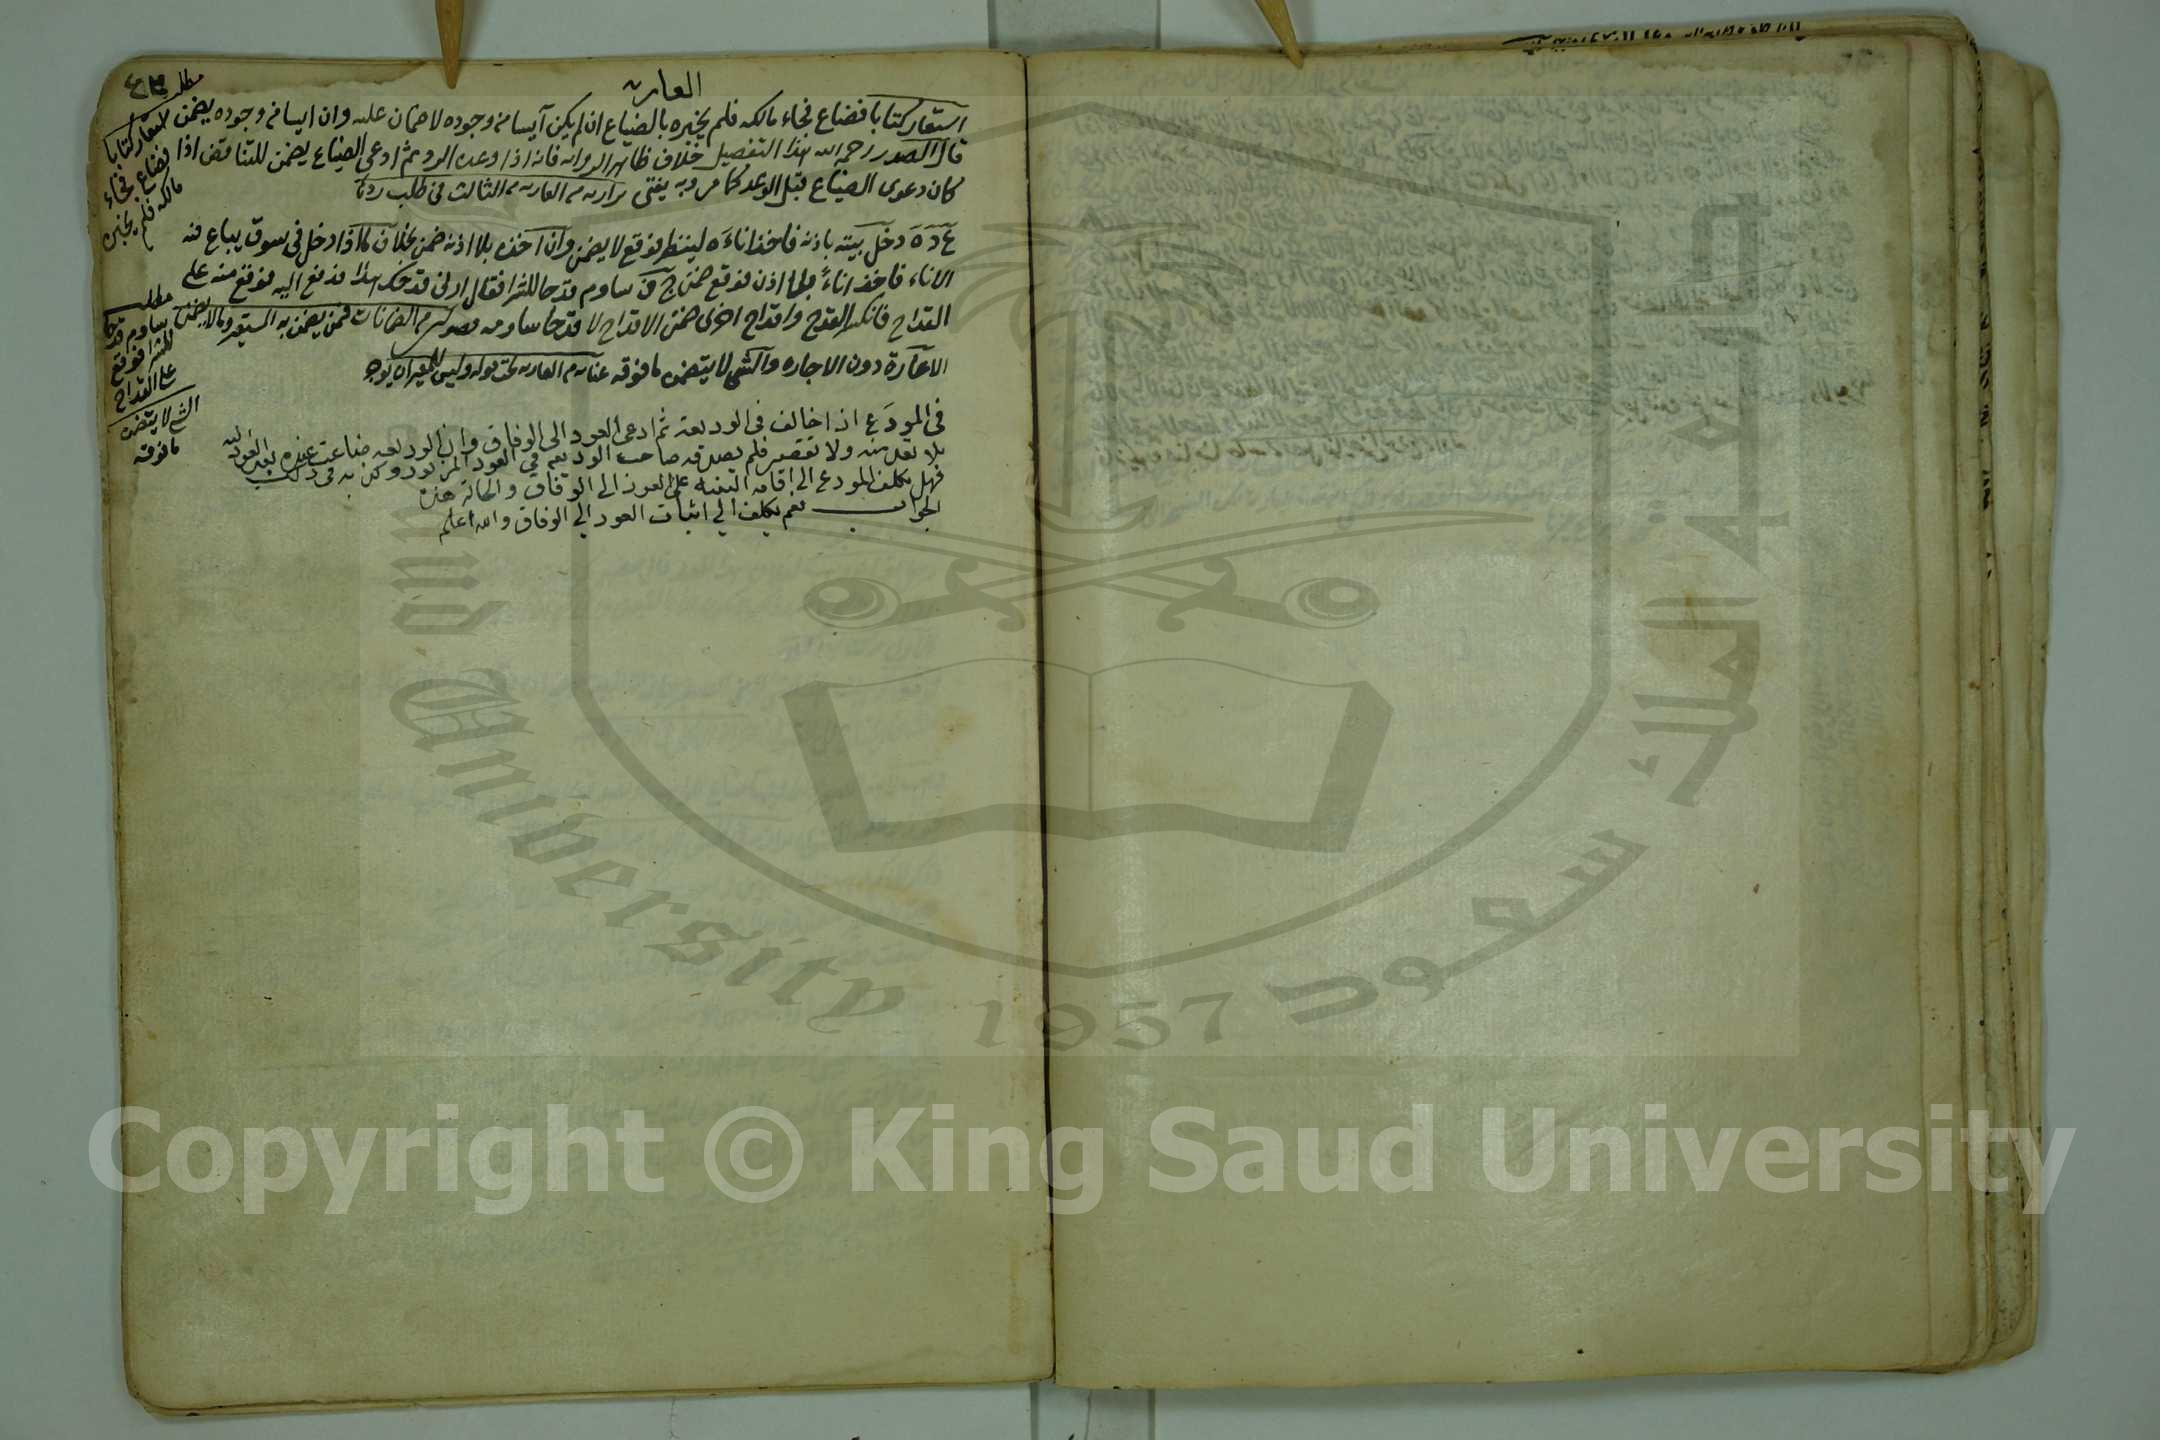 العاريه
استعار كتابا فضاع فجاء مالكه فلم يخبره بالضياع ان لم يكن آيسا من وجوده لا ضمان عليه وان ايسا من وجوده يضمن
قال الصدر رحمه الله هذا التفصيل خلاف ظاهر الروايه فانه اذا وعده الرد ثم ادعى الضياع يضمن للتناقض اذا
كان دعوى الضياع قبل الوعد كما مر وبه يفتى بزازيه من العاريه من الثالث في طلب ردها
دخل بيته باذنه فاخذ اناءه لينظر فوقع لا يضمن وان اخذه بلا اذنه ضمن بخلاف ما اذا دخل في سوق يباع فيه
الاناء فاخذ اناءً بلا اذن فوقع ضمن ساوم قدحا للشرا فقال ارني قدحك هذا فدفع اليه فوقع منه على
القداح فانكسر القدح واقداح اخرى ضمن الاقداح لا قدحا ساومه من الضمانات فيمن يضمن به المستعير وما لا يضمن
الاعارة دون الاجاره والشئ لا يتضمن ما فوقه عنايه من العاريه تحت قوله وليس للمعير ان يؤجر
في المودَع اذا خالف في الوديعة ثم ادعى العود الى الوفاق وان الوديعه ضاعت عنده بعد العود اليه
بلا تعد منه ولا تقصير فلم يصدقه صاحب الوديعه في العود المزبور وكذبه في ذلك
فهل يكلف المودع الى اقامة البينه على العود الى الوفاق والحالة هذه
الجواب نعم يكلف الى اثبات العود الى الوفاق والله اعلم
مطلب
استعار كتابا
فضاع فجاء
مالكه فلم يخبره
مطلب
ساوم قدحا
للشرا فوقع
على القداح
الشئ لا يتضمن
ما فوقه
King Saud University
1957
جامعة الملك سعود
Copyright © King Saud University